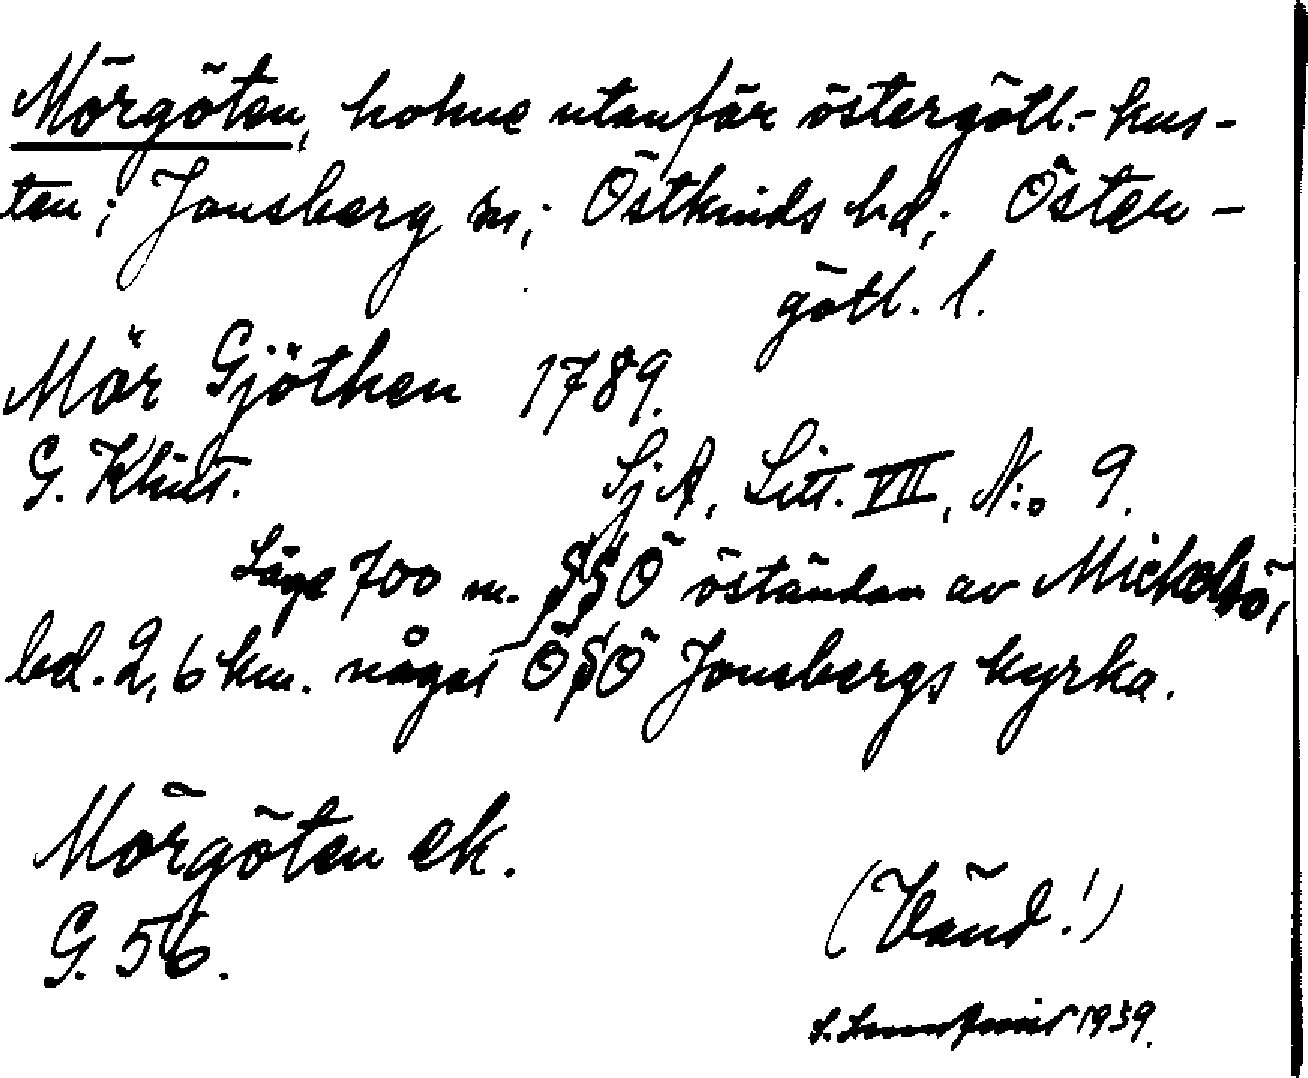 Mörgöten, holme utanför östergötl.- kus-
ten; Jonsberg sn; Östkinds hd; Öster-
götl. l.
Mör Gjöthen 1789.
G. Klint. SjA, Litt. VII, N:o 9.
Läge 700 m. SSO öständan av Mickelsö,
bel. 2,6 km. något OSO Jonsbergs kyrka.
Mörgöten ek.
G. 56.
(Vänd!)
1939.